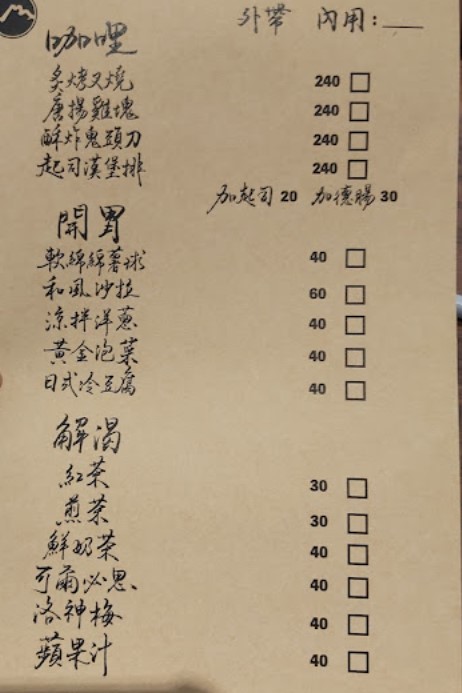 外帶 內用：
咖哩
炙烤叉燒 240
唐揚雞塊 240
酥炸鬼頭刀 240
起司漢堡排 240
加起司 20 加德腸 30
開胃
軟綿綿薯球 40
和風沙拉 60
涼拌洋蔥 40
黃金泡菜 40
日式冷豆腐 40
解渴
紅茶 30
煎茶 30
鮮奶茶 40
可爾必思 40
洛神梅 40
蘋果汁 40